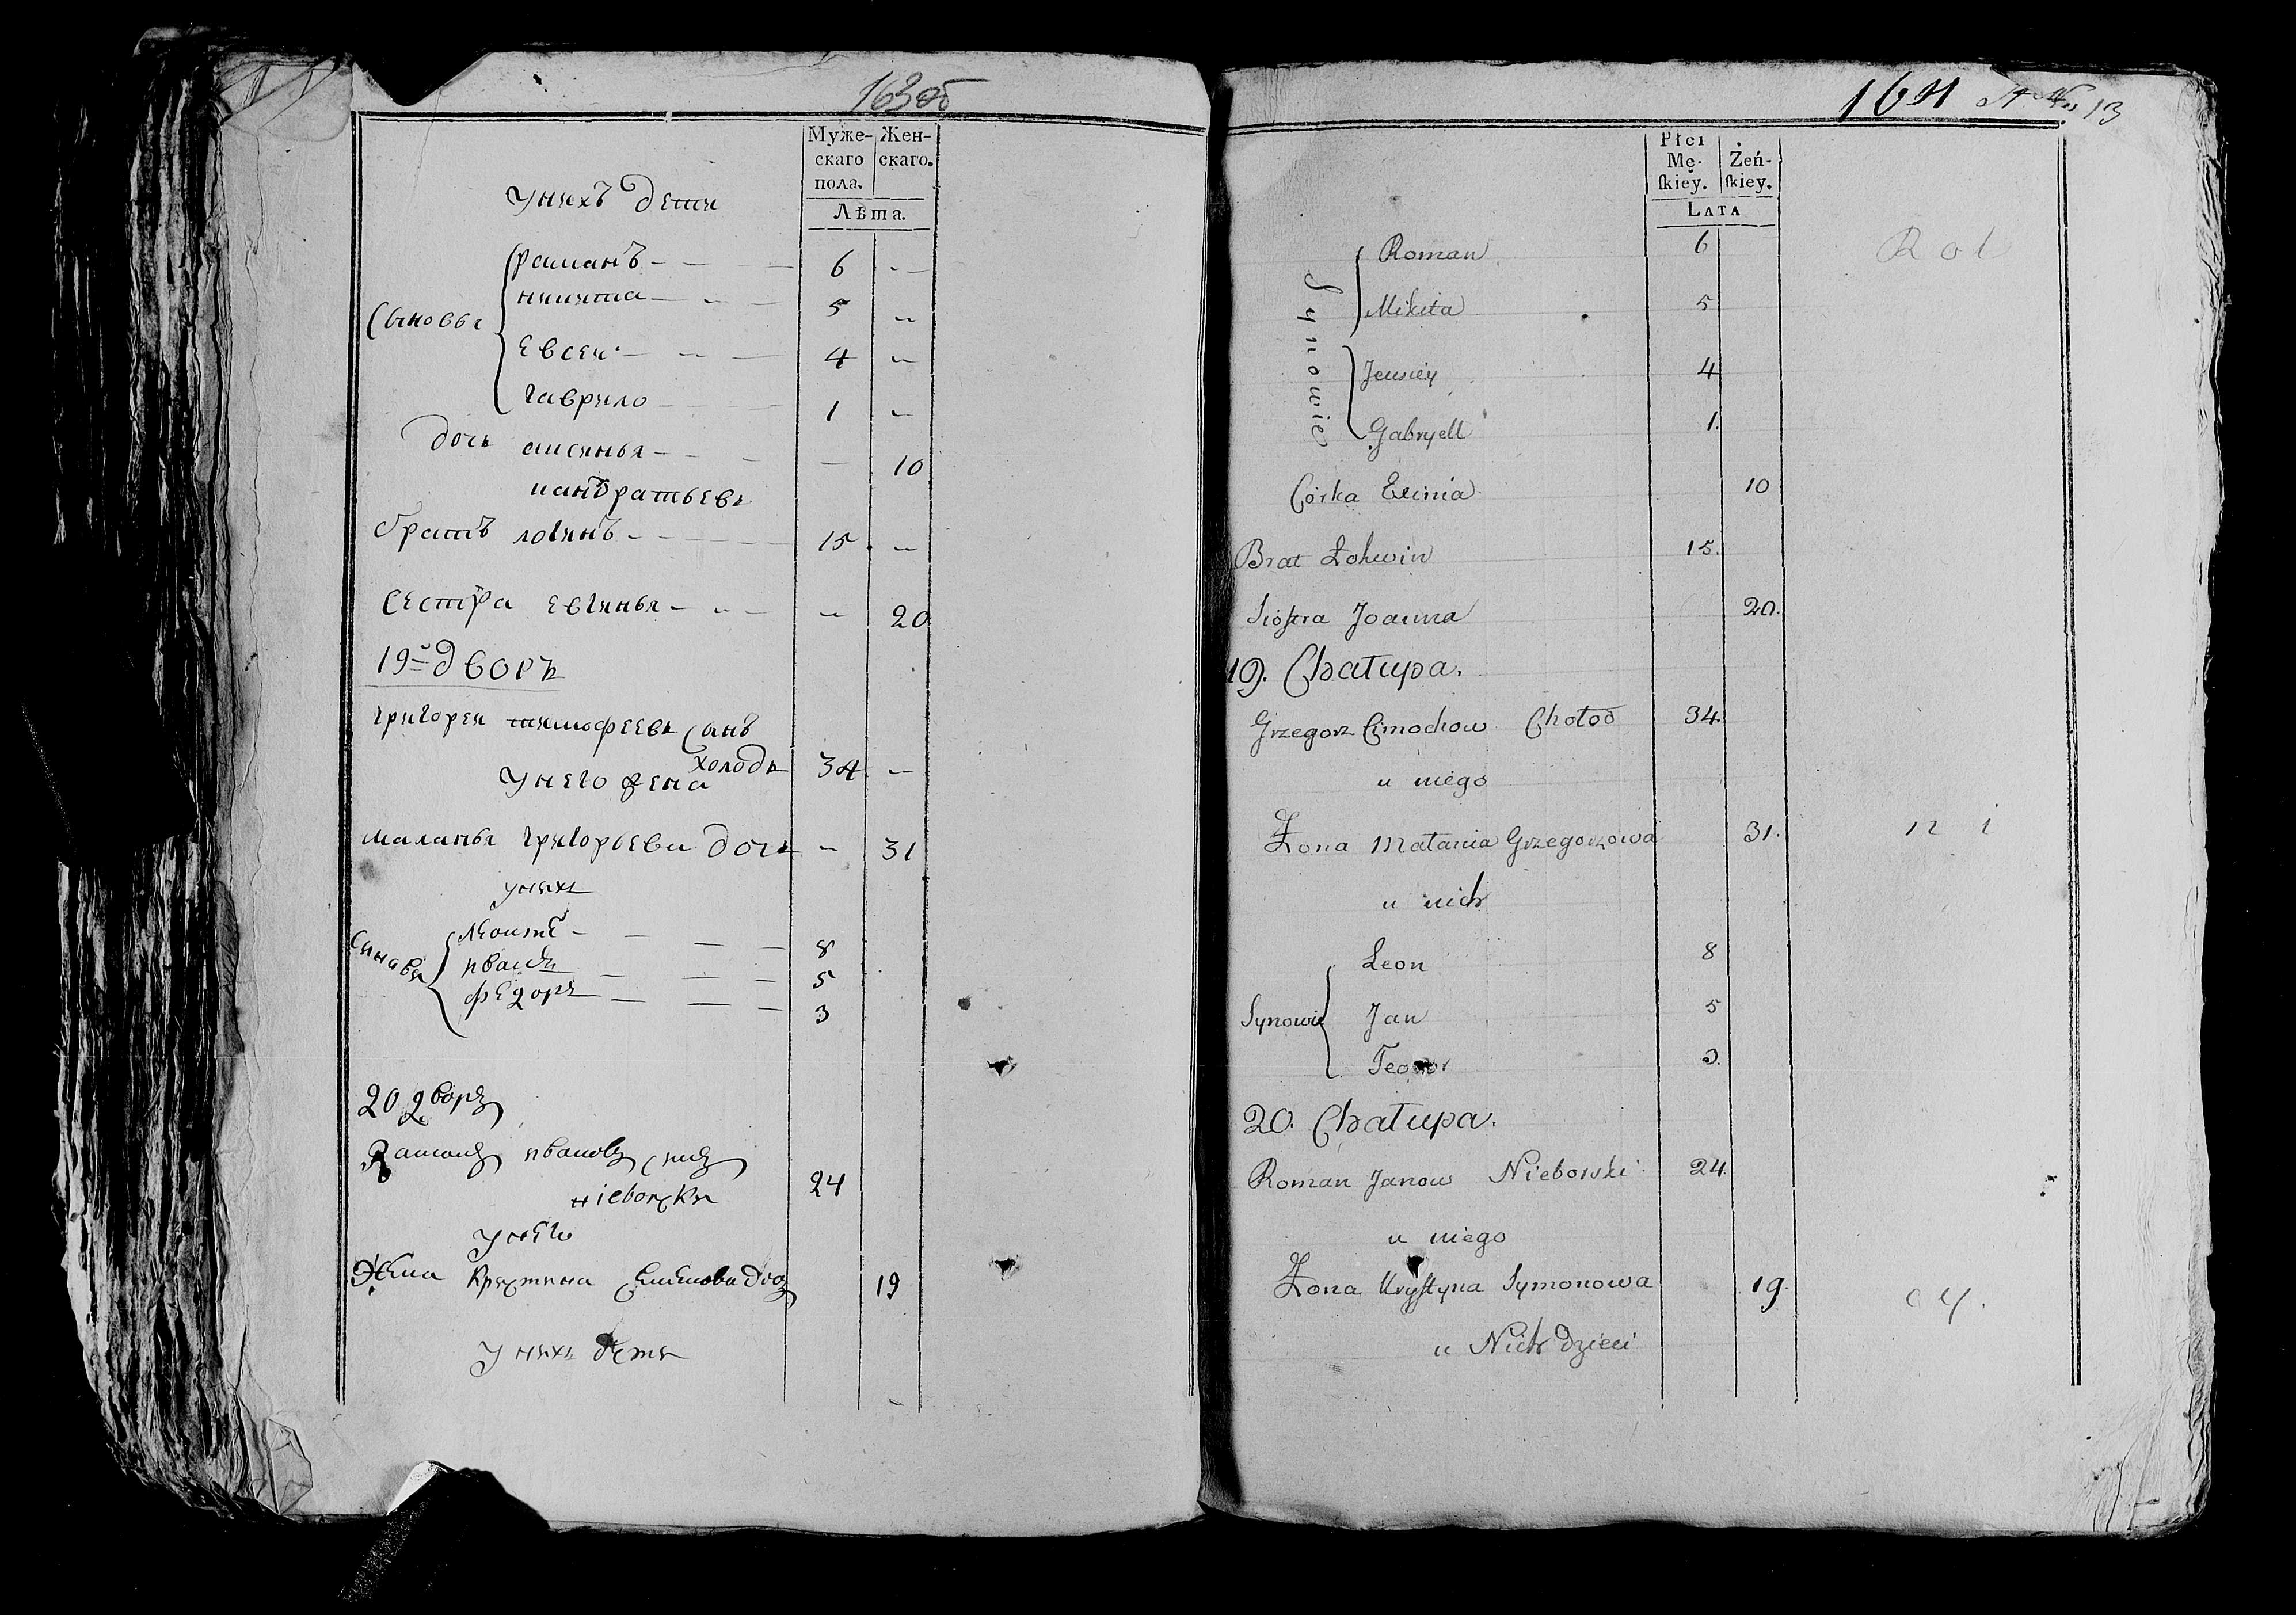 163об
Муже- Жен-
скаго скаго.
пола.
Лѣта.
у нихъ дети
Сыновьи
Раманъ 6
никита 5
Евсеи 4
гаврило 1
дочь аксинья 10
кандратьевъ
братъ логинъ 15
Сестра евгинья 20
19й дворъ
григореи тимофеевъ Сынъ
холодъ 34
у него жена
маланья григорьева дочь 31
у нихъ
Синавя
Леонтей 8
иванъ 5
Федоръ 3
20 дворъ
Рамонъ ивановъ синъ
ниеборски 24
у него
Жена Крихтина Симонова дочъ 19
у нихъ дети
164 13
Płci
Mę- Żeń-
skiey. skiey.
LATA
Synowie
Roman 6
Mikita 5
Jewsiey 4
Gabryell 1.
Córka Exinia 10
Brat Łohwin 15.
Siostra Joanna 20.
19. Chałupa.
Grzegorz Cimochow Chołod 34.
u niego
Żona Małania Grzegorzowa 31.
u nich
Synowie
Leon 8
Jan 5
Teodor 3.
20. Chałupa.
Roman Janow Nieborski 24.
u niego
Żona Krystyna Symonowa 19.
u Nich dzieci
Rol
n i
cy.